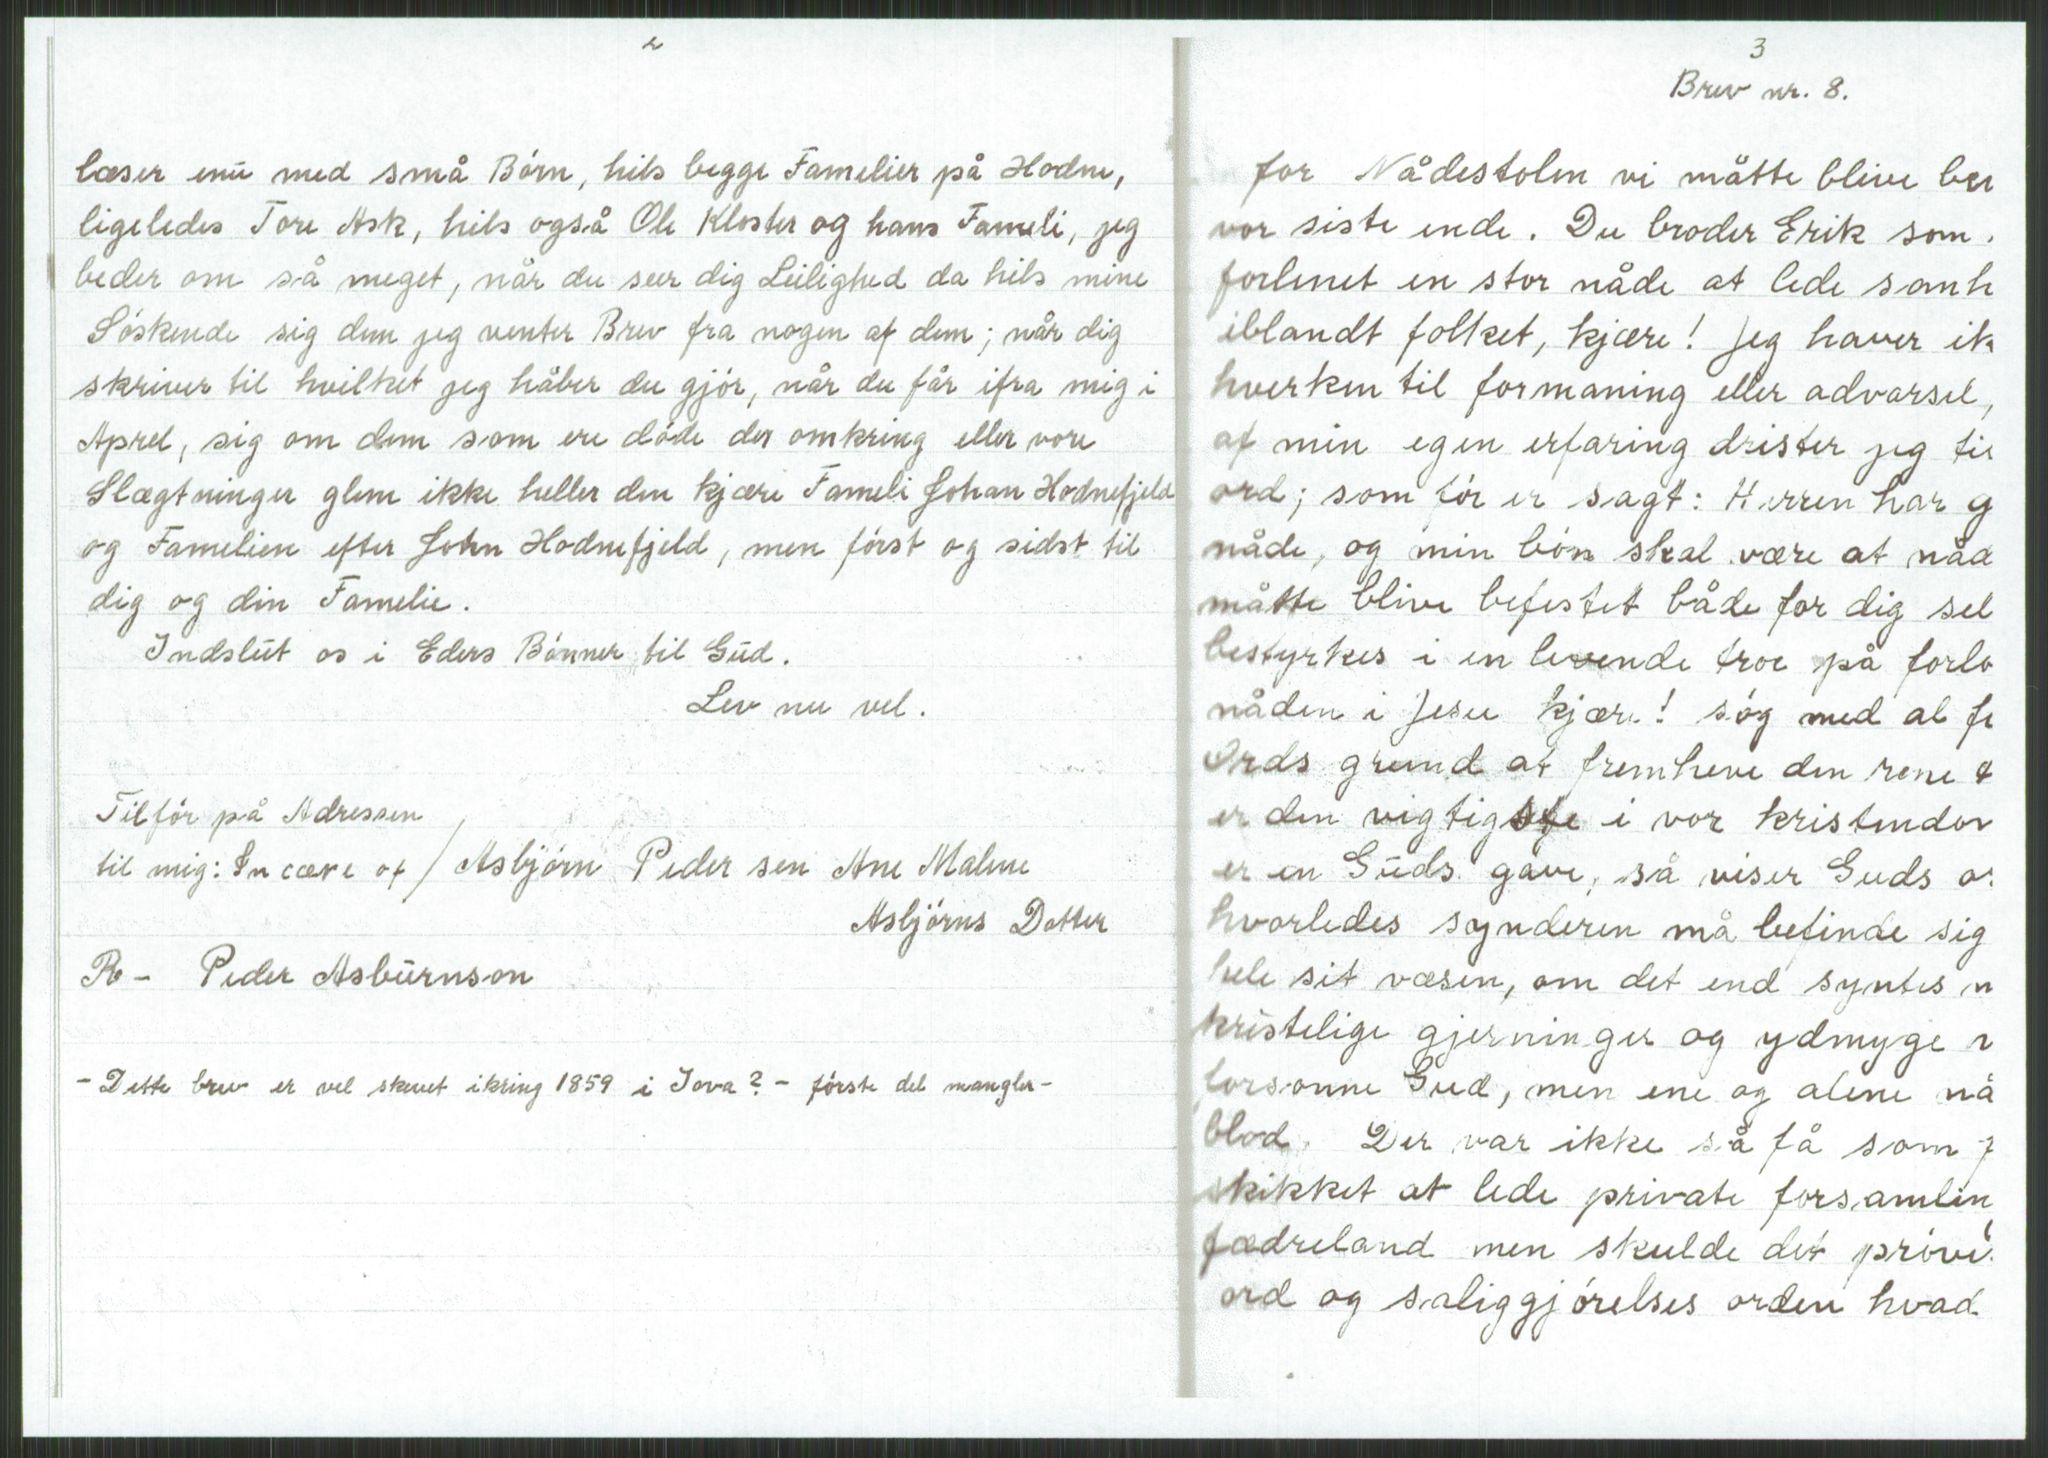 2
læser enu med små Börn, hils begge Familier på Hodne,
ligeledes Tore Ask, hils også Ole Kloster og hans Fameli, jeg
beder om så meget, når du seer dig Leilighed da hils mine
Söskende sig dem jeg venter Brev fra nogen af dem; når dig
skriver til hvilket jeg håber du gjör, når du får ifra mig i
Aprel, sig om dem som ere döde der omkring eller vore
Slægtninger glem ikke heller den kjære Fameli Johan Hodnefjeld
og Familien efter John Hodnefjeld, men först og sidst til
dig og din Famelie.
Indslut os i Eders Bönner til Gud.
Lev nu vel.
Tilför på Adressen
til mig: In cære of / Asbjörn Peder sen Ane Malene
Asbjörns Dotter
R – Peder Asburnson
- Dette brev er vel skrevet ikring 1859 i Iova? - förste del mangler -
3
Brev nr. 8.
for Nådestolen vi måtte blive ber
vor siste ende. Du broder Erik som
forlenet en stor nåde at lede samh
iblandt folket, kjære! Jeg haver ik
hverken til formaning eller advarsel,
af min egen erfaring drister jeg til
ord; som för er sagt: Herren har g
nåde, og min bön skal være at nåd
måtte blive befestet både for dig sel
bestyrkes i en levende troe på forlo
nåden i Jesu kjære! søg med al fl
Ords grund at fremheve den rene
er den vigtigste i vor kristendom
er en Guds gave, så viser Guds o
hvorledes synderen må befinde sig
hele sit væsen, om det end syntes n
kristelige gjerninger og ydmyge
forsonne Gud, men ene og alene nå
blod. Der var ikke så få som
skikket at lede private forsamlin
fædreland men skulde det pröve
ord og saliggjörelses orden hvad